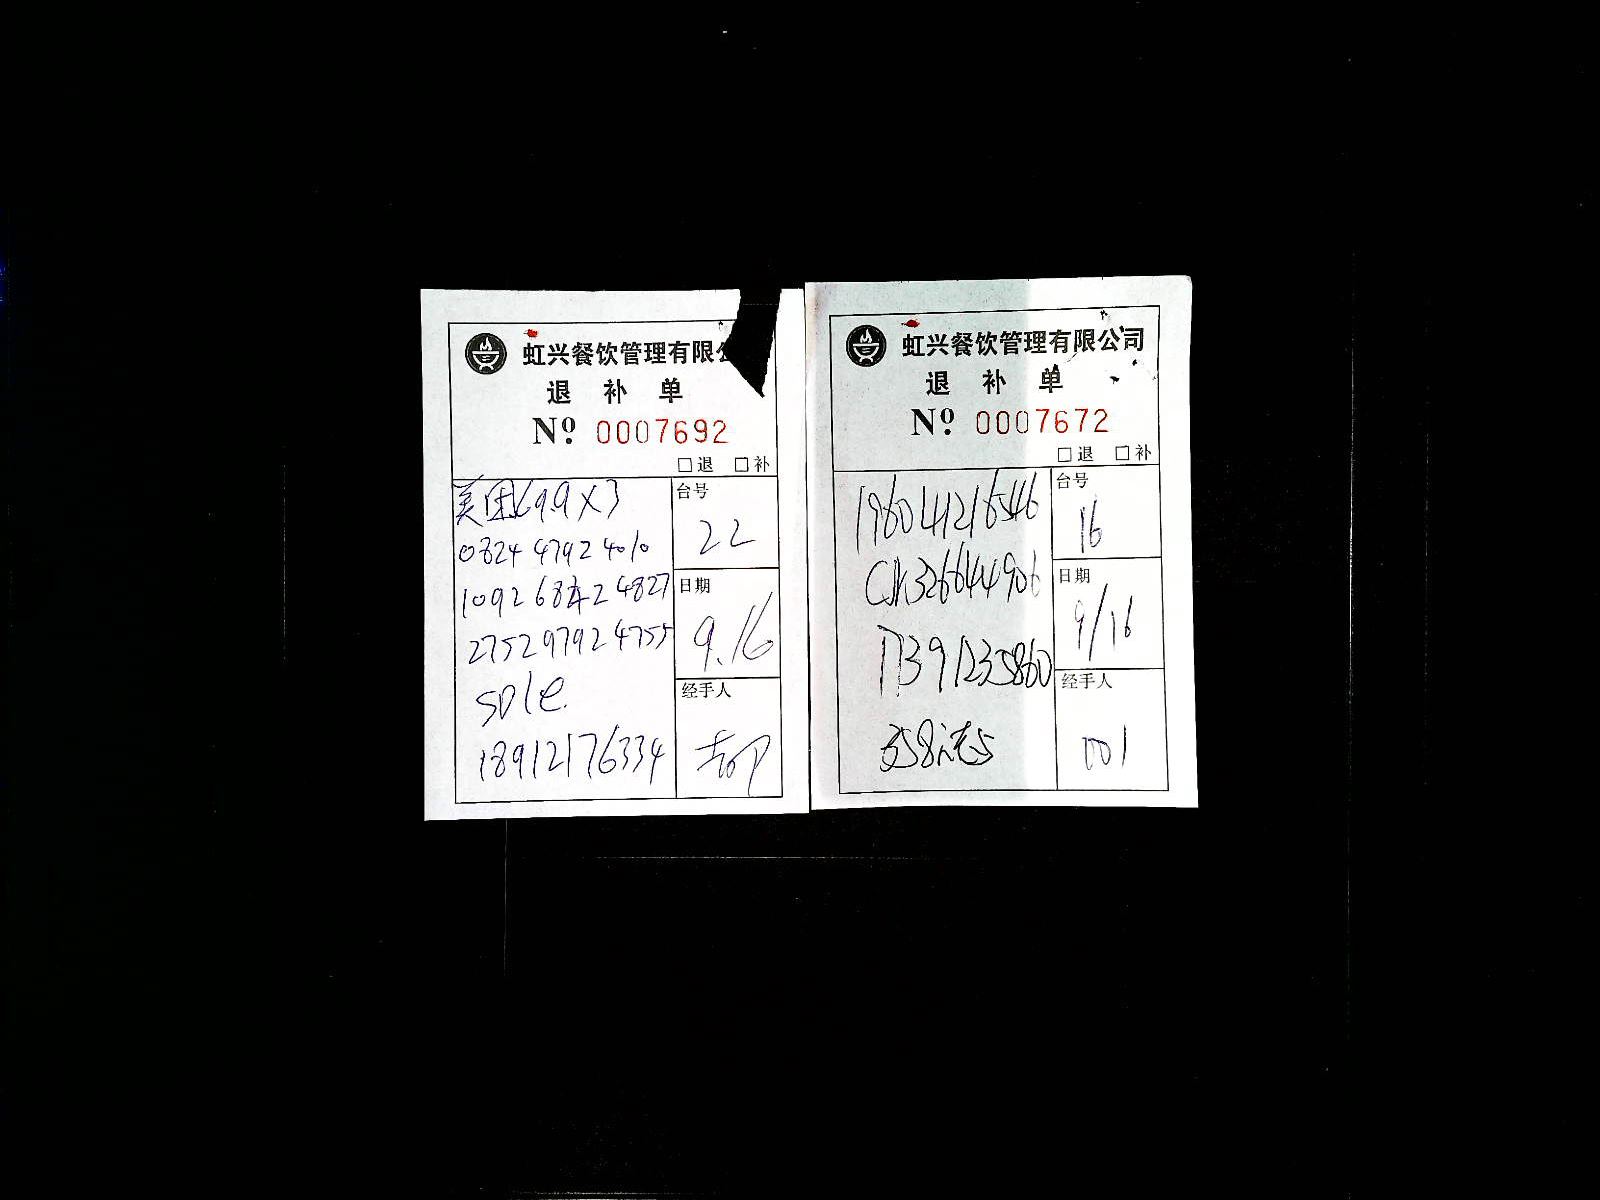 虹兴餐饮管理有限
退 补 单
Nº 0007692
□退 □补
美团69.9×3
台号
22
0824 4792 4010
1092 68 2 4827
日期
9.16
2752 9792 4755
sole
经手人
18912176334
虹兴餐饮管理有限公司
退 补 单
Nº 0007672
□退 □补
196041216546
台号
16
326644906
日期
9/16
17391235860
经手人
358
001